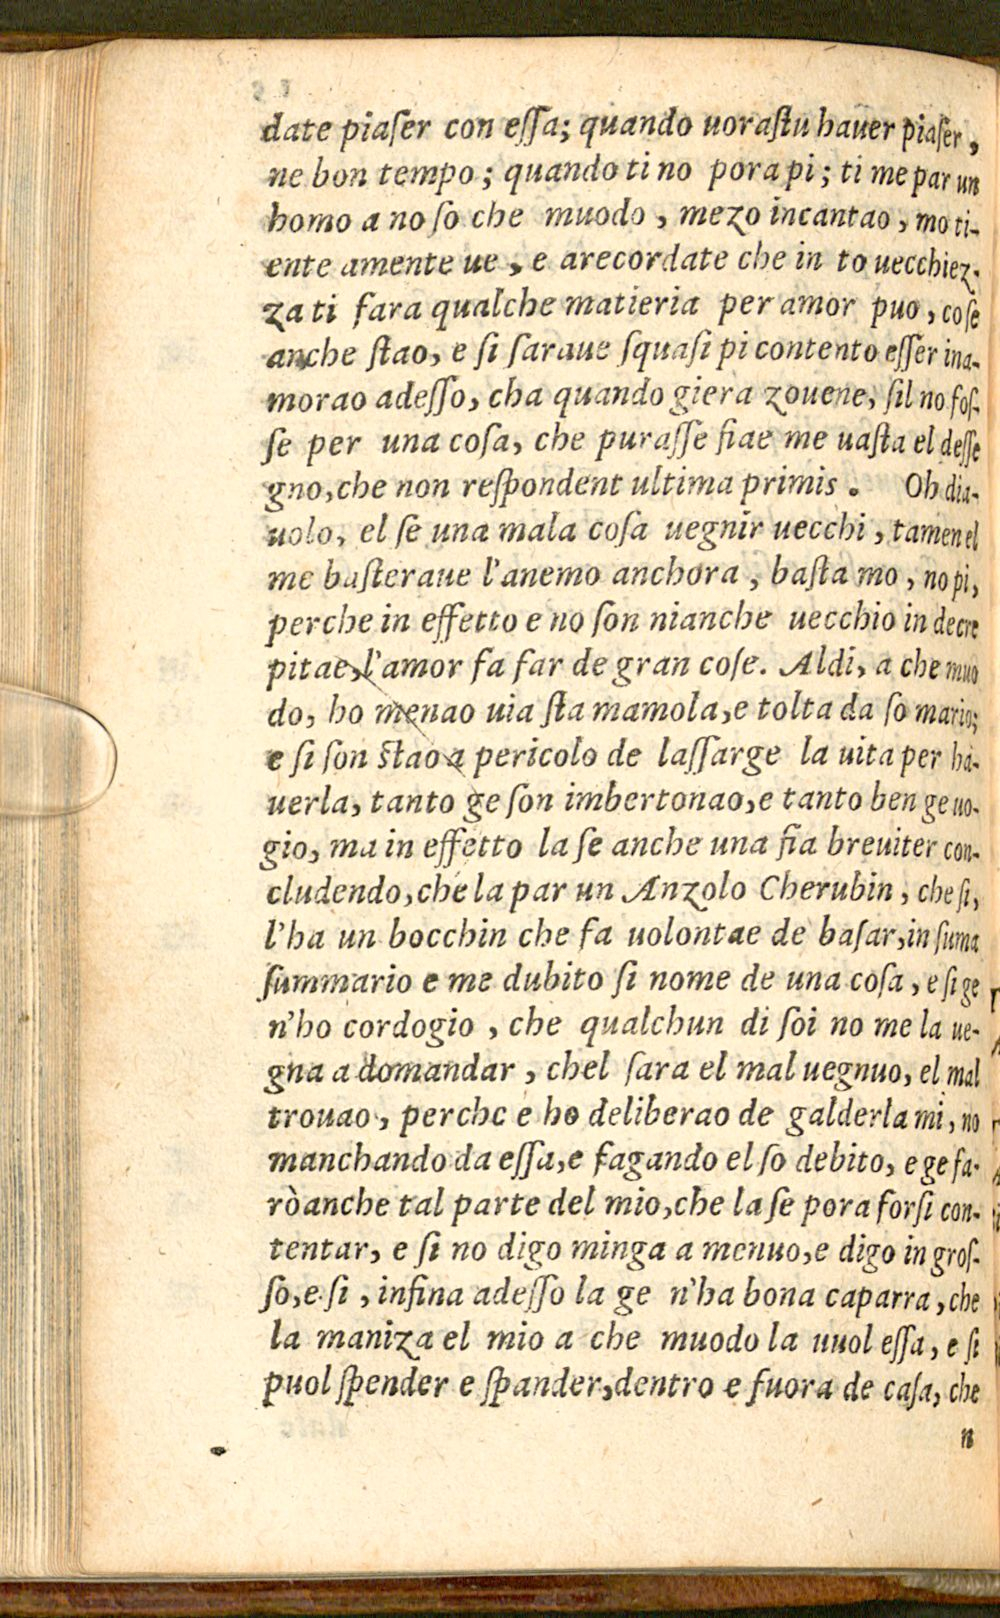 date piaſer con eſſa; quando uoraſtu hauer piaſer,
ne bon tempo; quando ti no pora pi; ti me par un
homo a no ſo che muodo, mezo incantao, mo ti-
ente amente ue, e arecordate che in to uecchiez-
za ti fara qualche matieria per amor puo, coſe
anche ſtao, e ſi ſaraue ſquaſi pi contento eſſer ina-
morao adeſſo, cha quando giera zouene, ſil no foſ-
ſe per una coſa, che puraſſe fiae me uaſta el deſſe
gno, che non reſpondent ultima primis. Oh dia-
uolo, el ſe una mala coſa uegnir uecchi, tamen el
me baſteraue l'anemo anchora, baſta mo, no pi,
perche in effetto e no ſon nianche uecchio in decre
pitae, l'amor fa far de gran coſe. Aldi, a che muo
do, ho menao uia ſta mamola, e tolta da ſo mario;
e ſi ſon ſtao a pericolo de laſſarge la uita per ha-
uerla, tanto ge ſon imbertonao, e tanto ben ge uo-
gio, ma in effetto la ſe anche una fia breuiter con-
cludendo, che la par un Anzolo Cherubin, che ſi,
l'ha un bocchin che fa uolontae de baſar, in ſuma
ſummario e me dubito ſi nome de una coſa, e ſi ge
n'ho cordogio, che qualchun di ſoi no me la ue-
gna a domandar, chel ſara el mal uegnuo, el mal
trouao, perche e ho deliberao de galderla mi, no
manchando da eſſa, e fagando el ſo debito, e ge fa-
rò anche tal parte del mio, che la ſe pora forſi con-
tentar, e ſi no digo minga a menuo, e digo in groſ-
ſo, e ſi, infina adeſſo la ge n'ha bona caparra, che
la maniza el mio a che muodo la uuol eſſa, e ſi
puol ſpender e ſpander, dentro e fuora de caſa, che
n